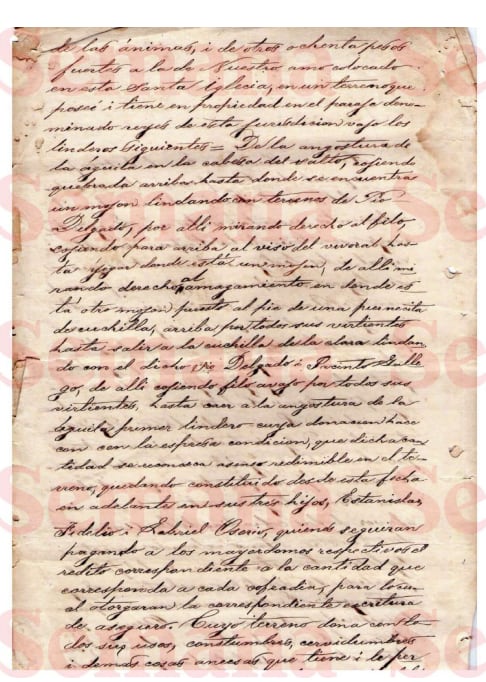 de las ánimas, i de otros ochenta pesos
fuertes a la de Nuestro amo colocado
en esta Santa Iglecia, en un terreno que
posee i tiene en propiedad en el paraje deno-
minado reyes de esta jurisdiccion vajo los
linderos siguientes = De la angostura de
la águila en la cabesa del salto, cojiendo
quebrada arriba hasta donde se encuentra
un mojon lindando con terrenos de Pio
Delgado, por allí mirando derecho al filo,
cojiendo para arriba al viso del vivoral has-
ta llegar donde está un mojon, de allí mi-
rando derecho al amagamiento en donde es-
tá otro mojon puesto al pie de una
de cuchilla, arriba por todos sus virtientes
hasta salir a la cuchilla de la clara lindan-
do con el dicho Pio Delgado i Jacinto Galle-
go, de allí cojiendo filo avajo por todos sus
virtientes, hasta caer a la angostura de la
águila primer lindero cuya donacion hace
con con la espresa condicion, que dicha can-
tidad se reconosca asenso redimible en el te-
rreno, quedando constituido desde esta fecha
en adelante en sus tres hijos, Estanislao,
Fidelio i Gabriel Osorio, quienes seguiran
pagando a los mayordomos respectivos el
redito correspondiente a la cantidad que
corresponda a cada cofradia, para lo cu-
al otorgaran la correspondiente escritura
de aseguro. Cuyo terreno dona con to-
dos sus usos, constumbres, cervidumbres
i demas cosas anecsas que tiene i le per
Semana